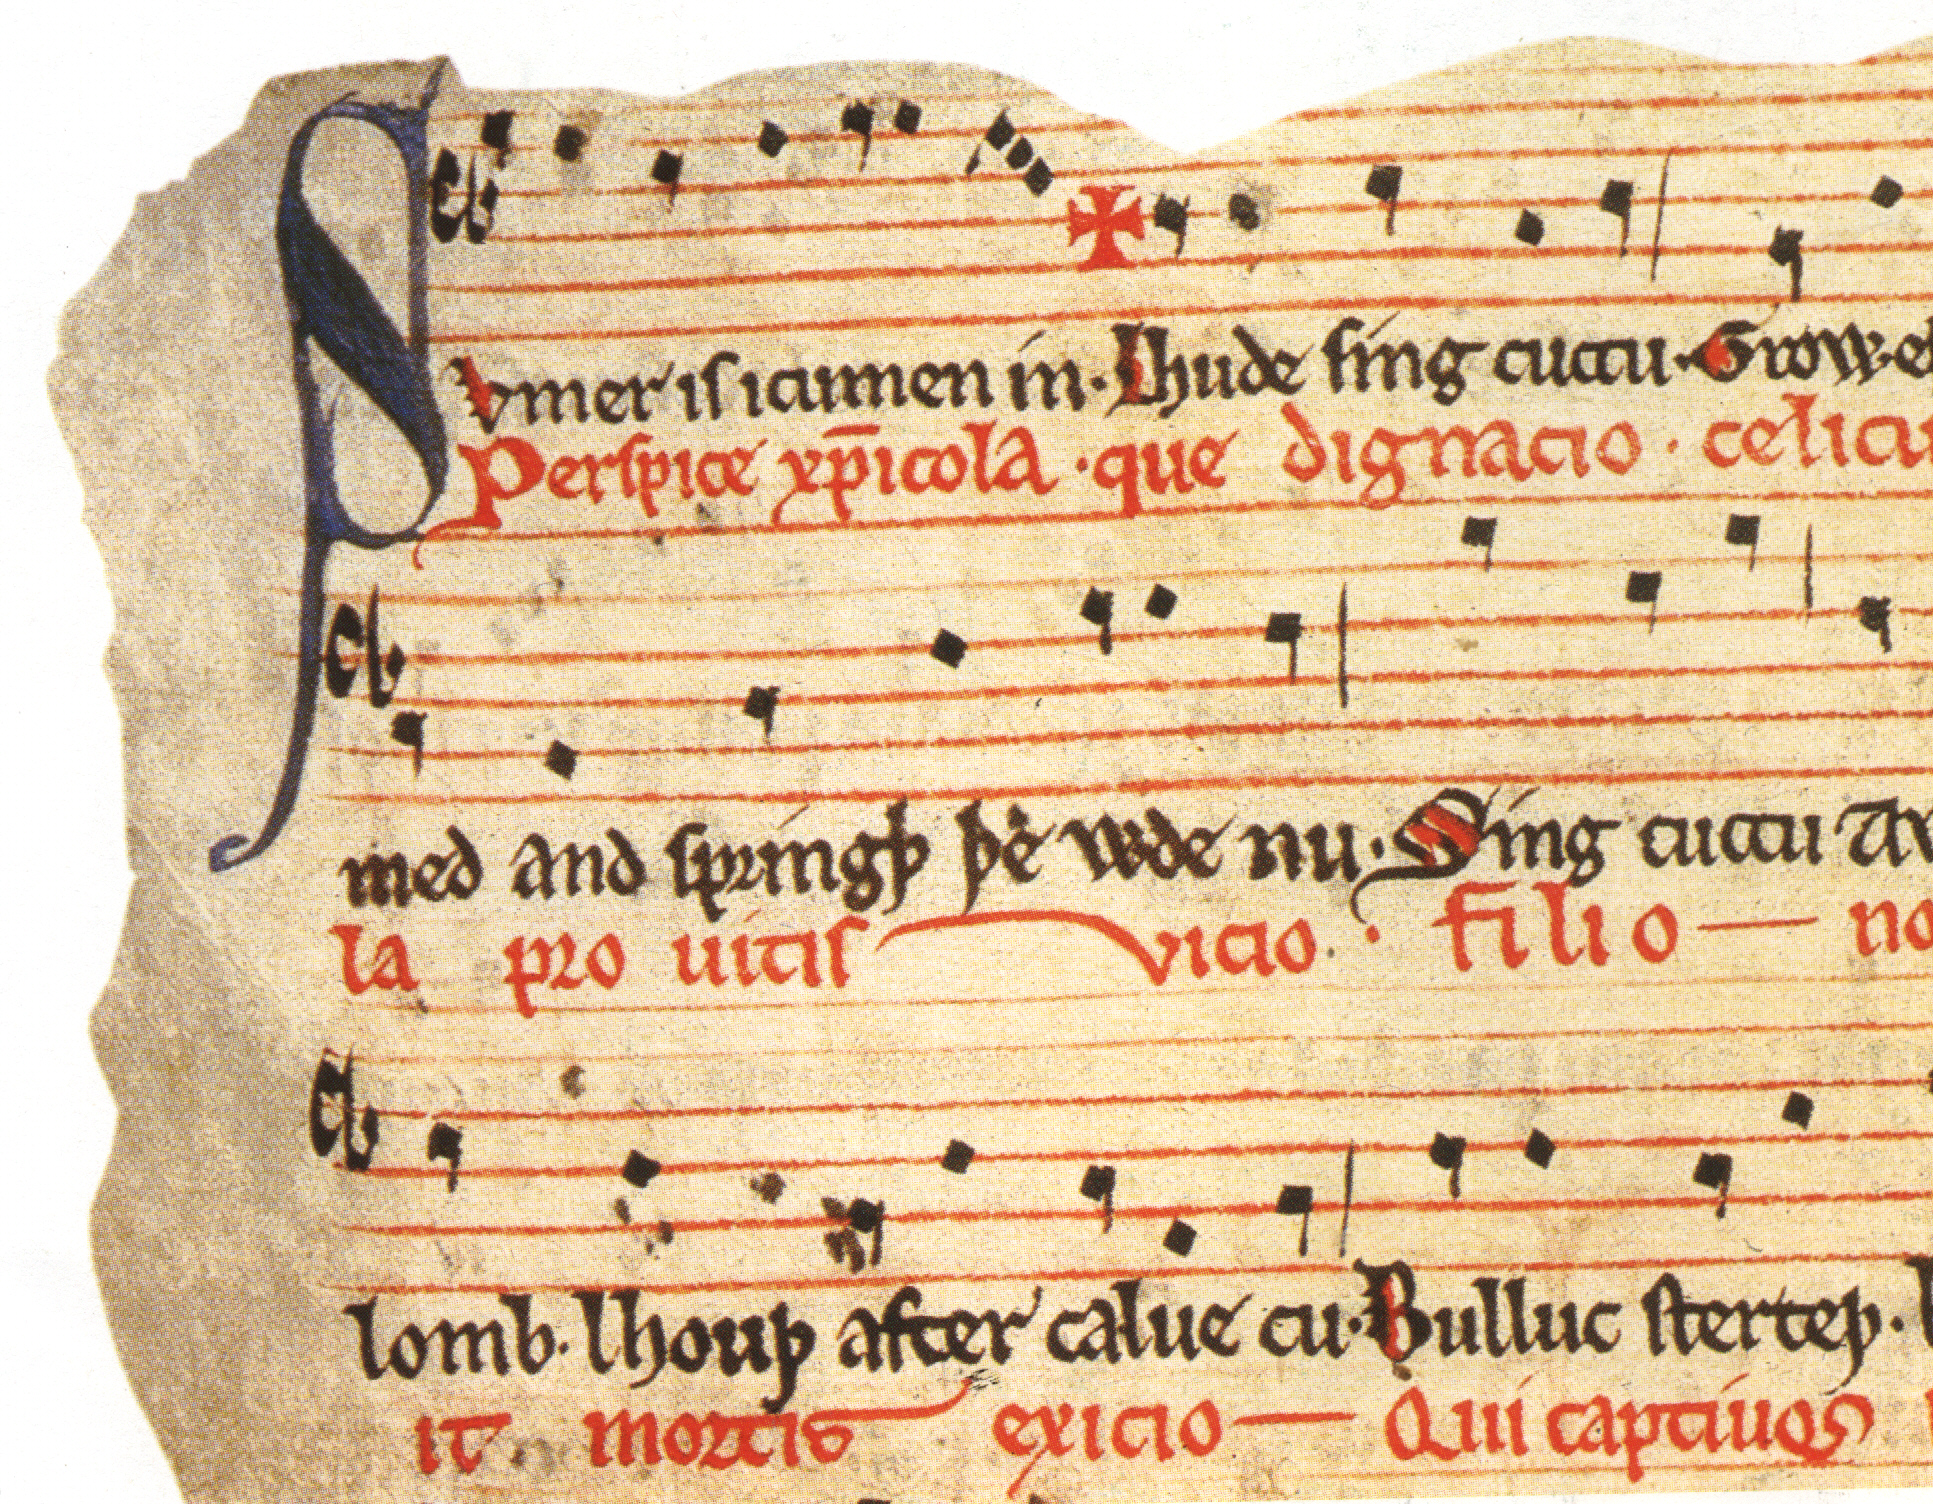 Svmer is icumen in. Lhude sing cuccu. Growe
Perspice xp̄icola. que dignacio. celicu
med and springþ þe wde nu. Sing cuccu Aw
la pro uitis vicio. filio — no
lomb. lhouþ after calue cu. Bulluc sterteþ.
it mortis exicio — Qui captiuos